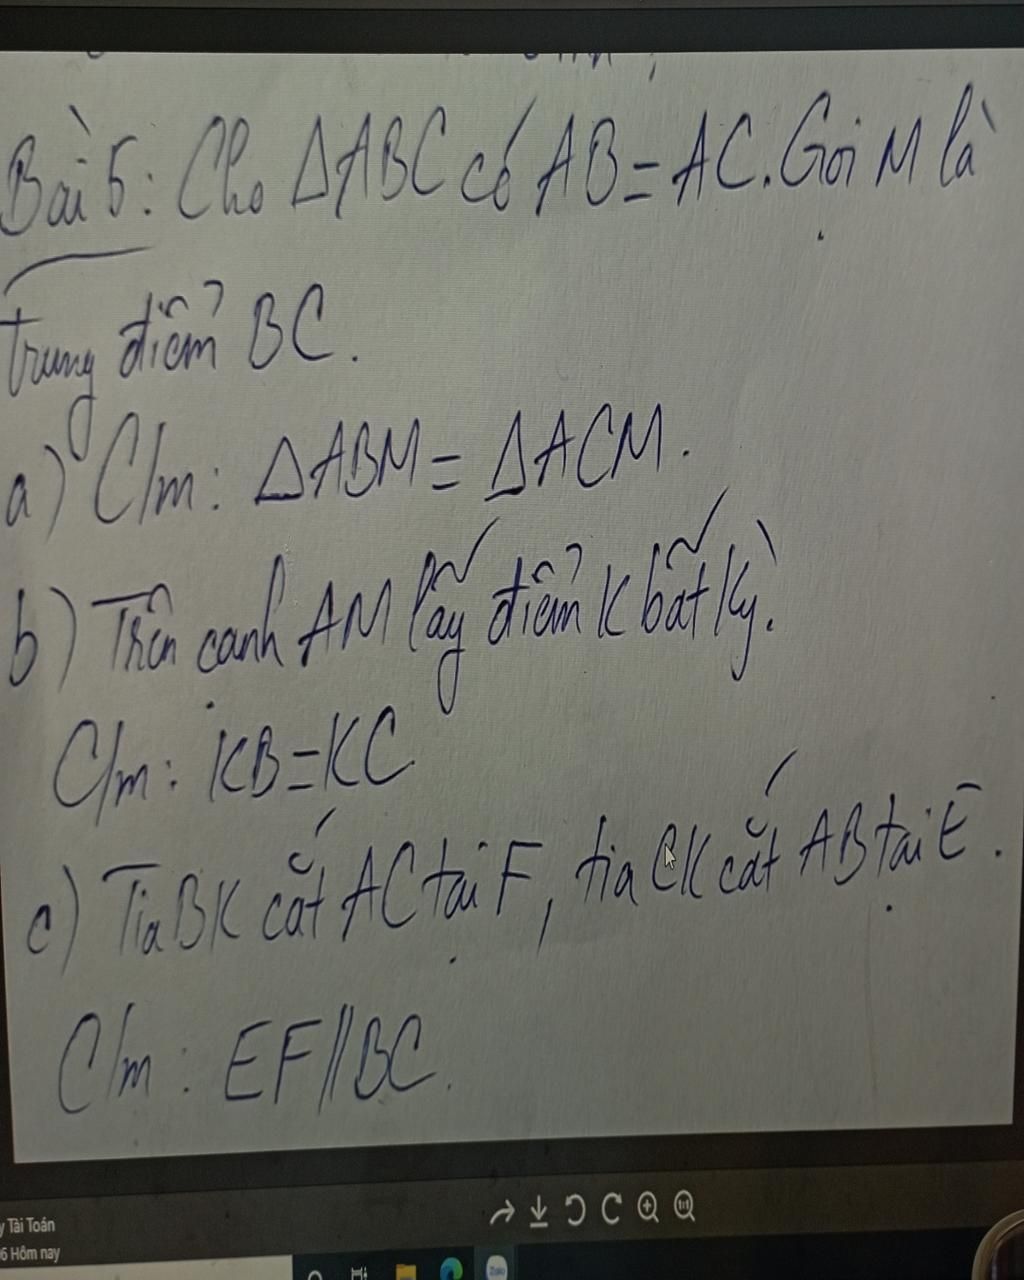 Bài 5: Cho ΔABC có AB = AC. Gọi M là
trung điểm BC.
a) C/m: ΔABM = ΔACM.
b) Trên cạnh AM lấy điểm K bất kỳ.
C/m: KB = KC
c) Tia BK cắt AC tại F, tia CK cắt AB tại E.
C/m: EF // BC.
Tài Toán
Hôm nay
Zalo